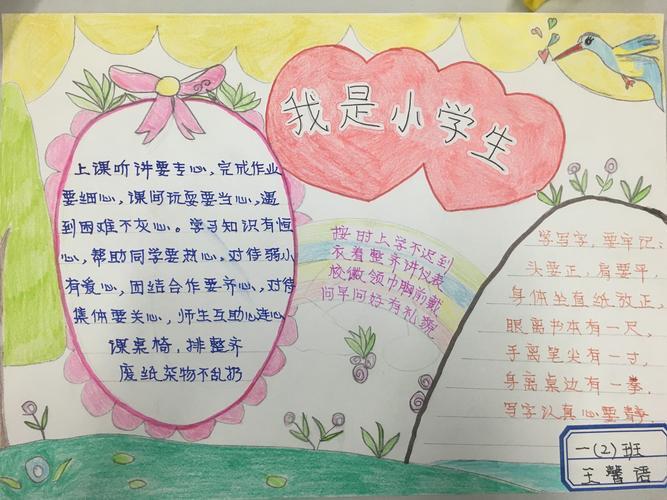 我是小学生
上课听讲要专心,完成作业
要细心,课间玩耍要当心,遇
到困难不灰心。学习知识有恒
心,帮助同学要热心,对待弱小
有爱心,团结合作要齐心,对待
集体要关心,师生互助心连心
课桌椅,排整齐
废纸杂物不乱扔
按时上学不迟到
衣着整齐讲仪表
校徽领巾胸前戴
问早问好有礼貌
学写字,要牢记,
头要正,肩要平,
身体坐直纸放正,
眼离书本有一尺,
手离笔尖有一寸,
身离桌边有一拳,
写字认真心要静,
一(2)班
王馨语